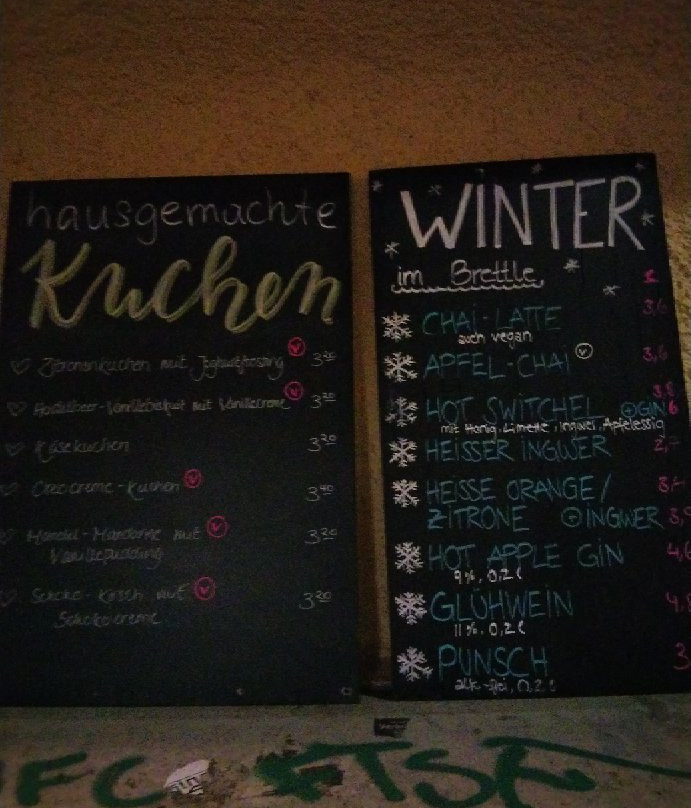 hausgemachte
Kuchen
Zitronenkuchen mit Joghurtfrosting V 3 20
mit Vanillecreme V 3 20
Käsekuchen 3 20
Oreocreme-Kuchen V 3 40
Mandel-Mandarine mit V 3 20
Vanillepudding
Schoko-Kirsch mit V 3 20
Schokocreme
WINTER
im Brettle
CHAI-LATTE 3,6
auch vegan
APFEL-CHAI V 3,6
3,8
HOT SWITCHEL +GIN 6
mit Honig, Limette, Ingwer, Apfelessig
HEISSER INGWER 2,7
HEISSE ORANGE/
ZITRONE + INGWER
HOT APPLE GIN
9%, 0,2l
GLÜHWEIN
11%, 0,2l
PUNSCH 3
alk-frei, 0,2l
FC TSF